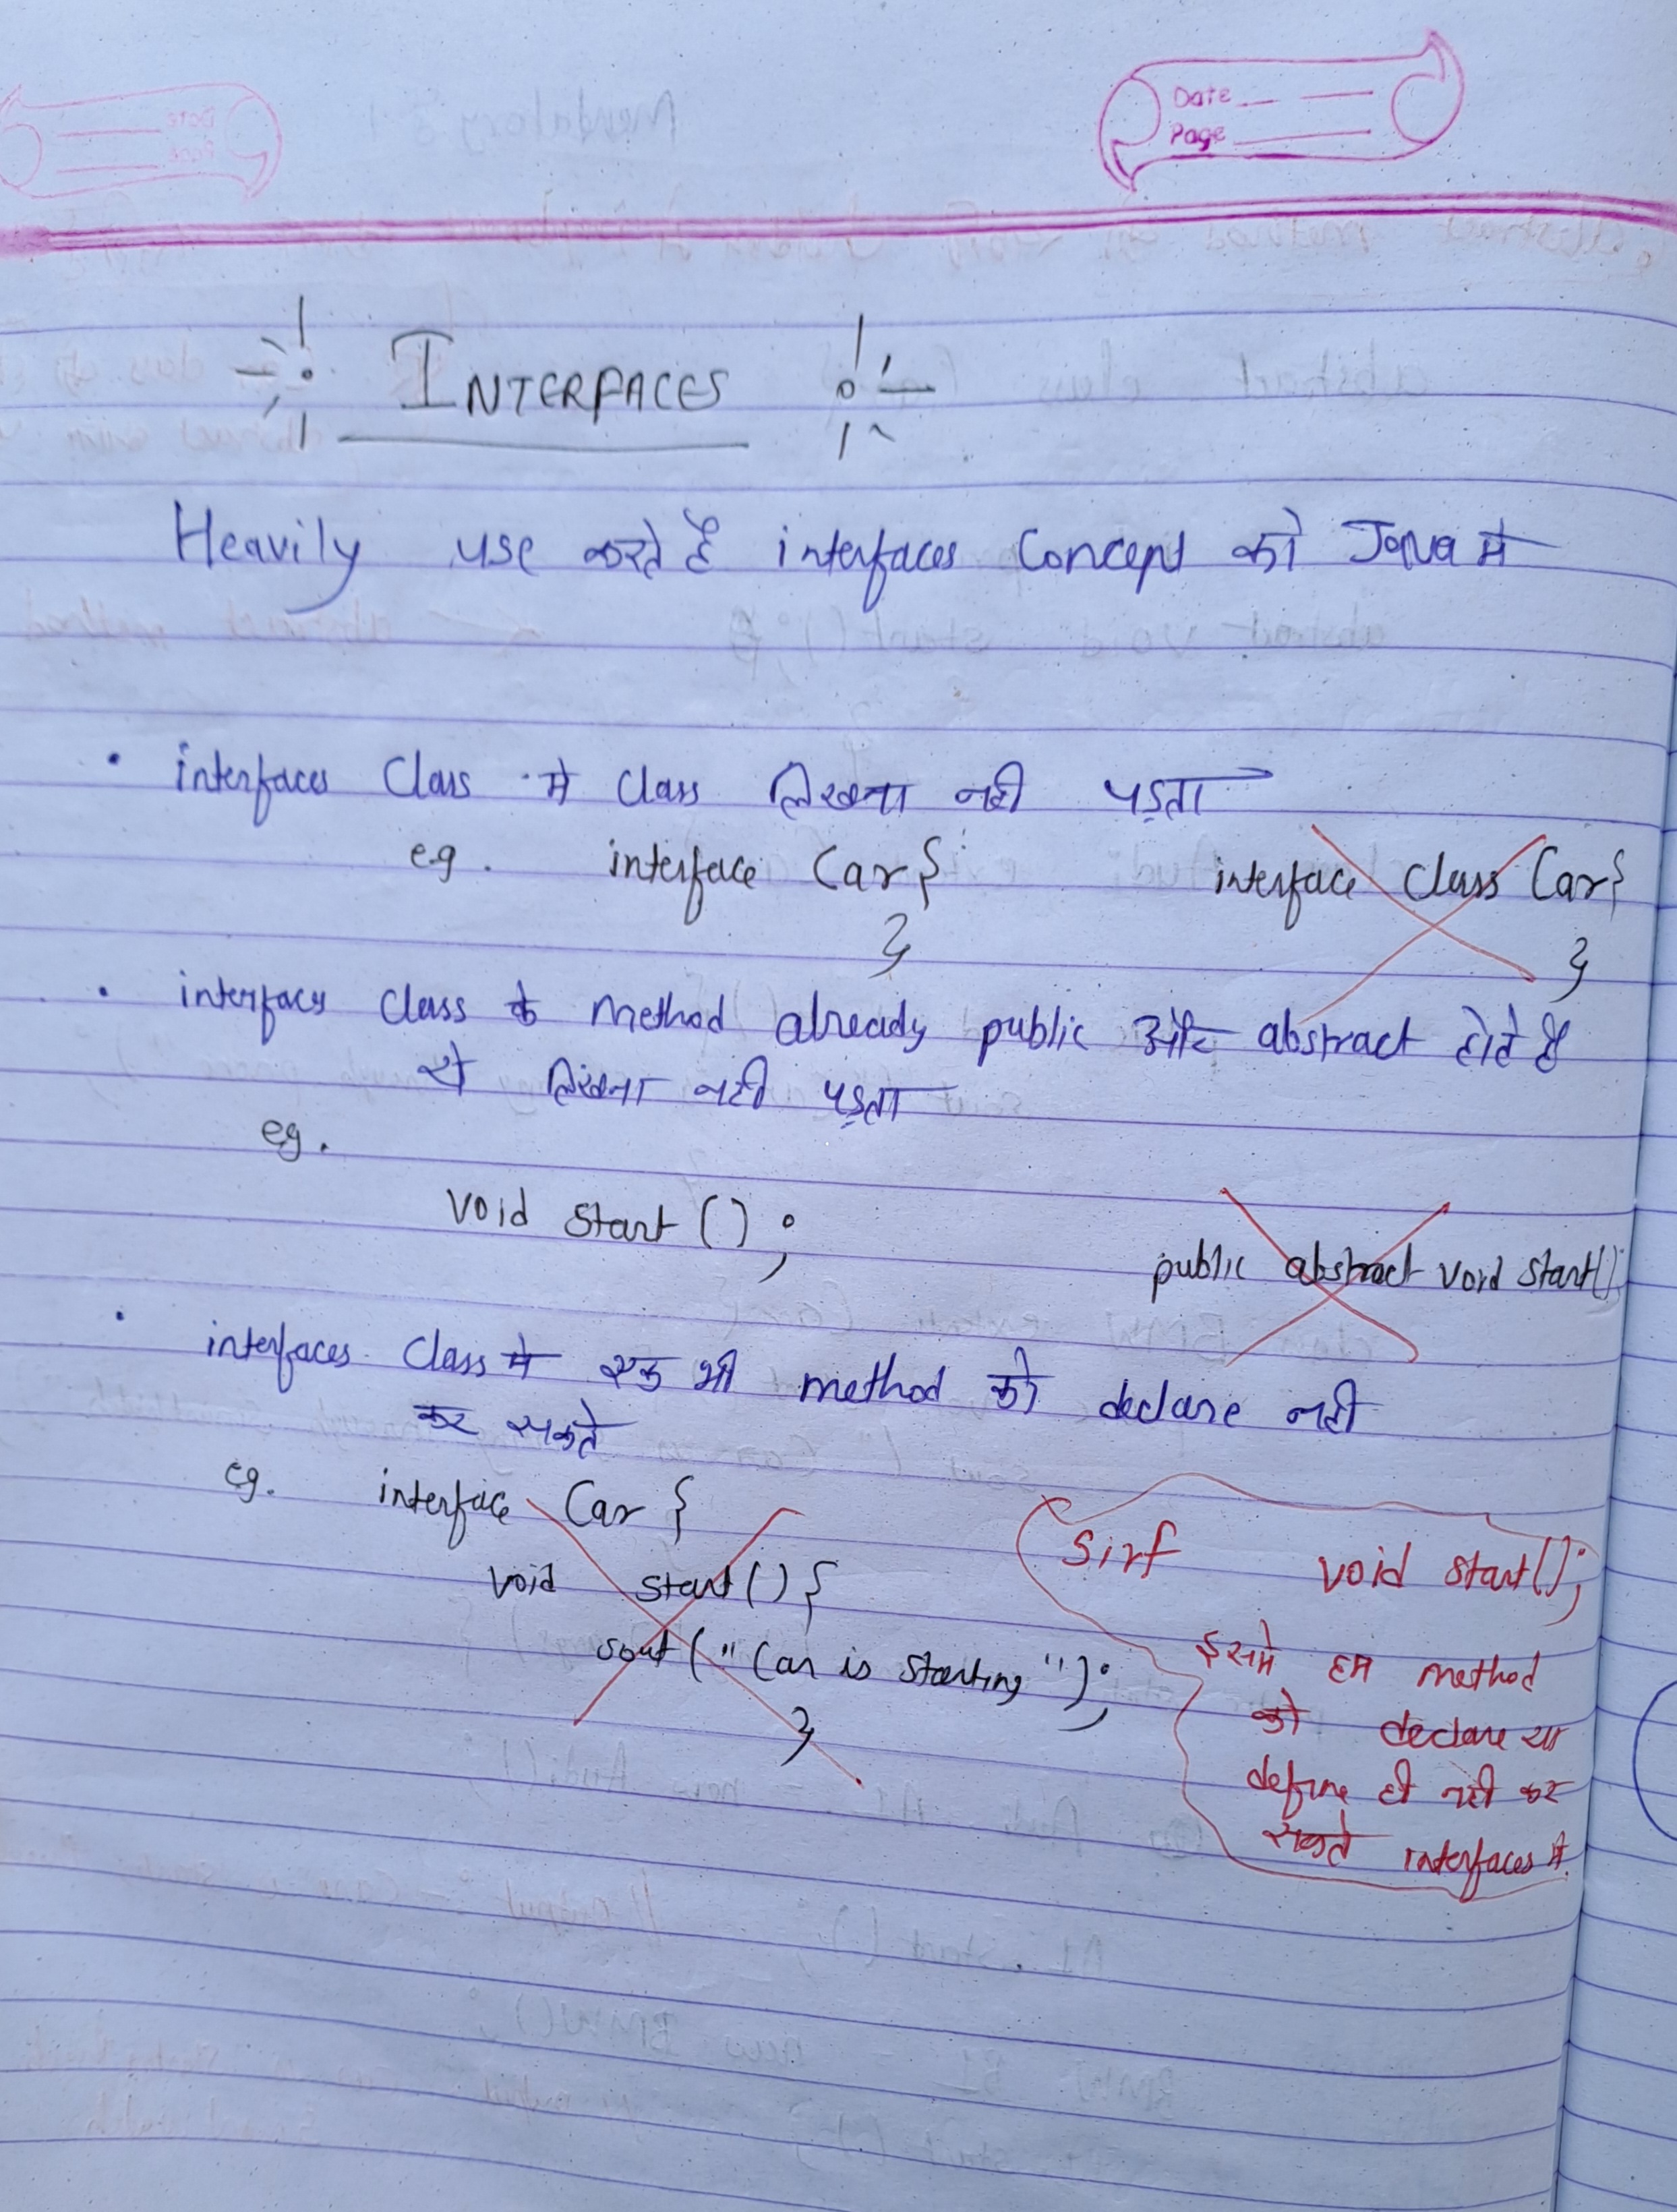 Date
Page
INTERFACES
Heavily use करते है interfaces concept को Java मे
• interfaces class मे class लिखना नही पड़ता
e.g. interface Car{ interface class Car{
} }
• interfaces class के method already public और abstract होते है
से लिखना नही पड़ता
eg.
void start();
public abstract void start();
• interfaces class मे एक भी method को declare नही
कर सकते
eg. interface Car {
void start(){
sout("Car is starting");
}
Sirf void start();
इसमे हम method
को declare या
define ही नही कर
सकते interfaces मे.